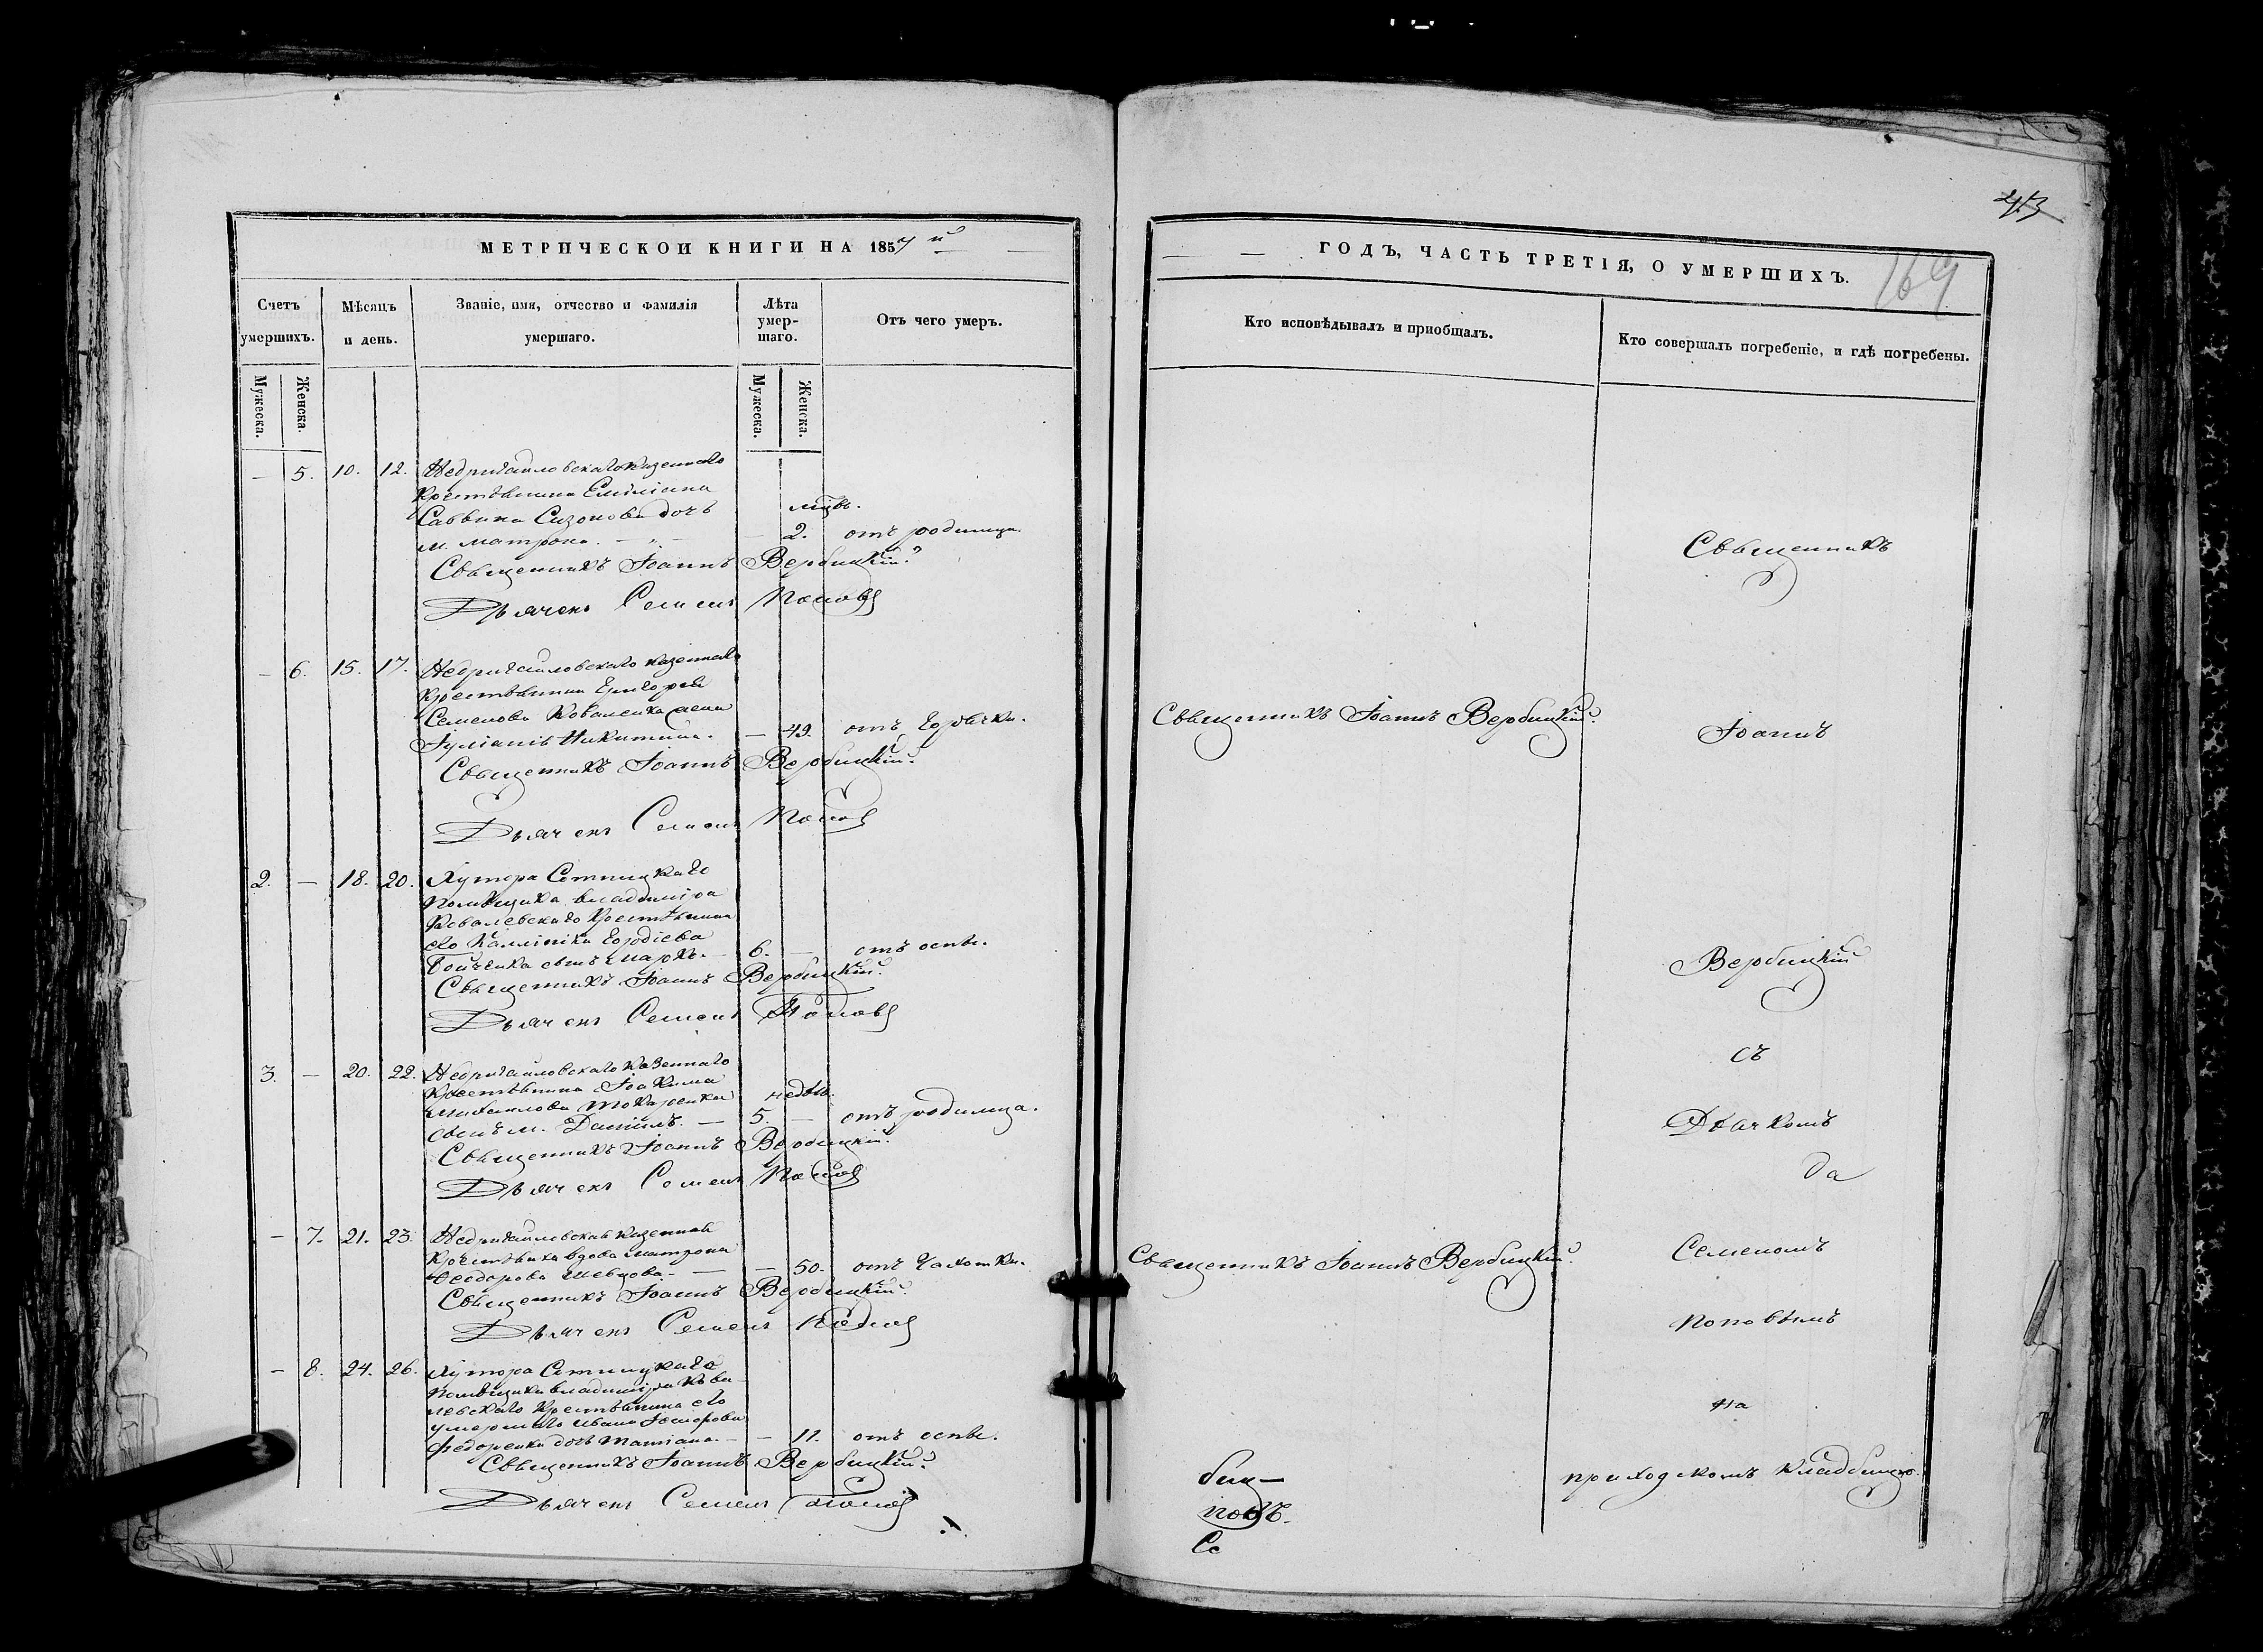 МЕТРИЧЕСКОЙ КНИГИ НА 1857 й
Счетъ умершихъ.
Мѣсяцъ и день.
Званіе, имя, отчество и фамилія умершаго.
Лѣта умер-
шаго.
Отъ чего умеръ.
Мужеска.
Женска.
Мужеска.
Женска.
— 5. 10. 12. Недригайловскаго казеннаго
крестьянина Емиліана
Саввина Сизонова дочь
м. Матрона. — 2. отъ родимца.
Священникъ Іоаннъ Вербицкій.
Дьячекъ Семенъ Поповъ
— 6. 15. 17. Недригайловскаго казеннаго
крестьянина Григорія
Семенова Коваленка жена
Іуліанія Никитина. — 49. отъ горячки.
Священникъ Іоаннъ Вербицкій.
Дьячекъ Семенъ Поповъ
2. — 18. 20. Хутора Сетницкаго
помѣщика Владиміра
Ковалевскаго крестьянина
его Каллиника Гордіева
Бойченка сынъ Маркъ. 6. — отъ оспы.
Священникъ Іоаннъ Вербицкій.
Дьячекъ Семенъ Поповъ
3. — 20. 22. Недригайловскаго казеннаго
крестьянина Іоакима
Михайлова Токаренка недѣль.
сынъ м. Даніилъ. — 5. — отъ родимца.
Священникъ Іоаннъ Вербицкій.
Дьячекъ Семенъ Поповъ
— 7. 21. 23. Недригайловская казенная
крестьянка вдова Матрона
Ѳеодорова Шевцова. — — 50. отъ чахотки.
Священникъ Іоаннъ Вербицкій.
Дьячекъ Семенъ Поповъ
— 8. 24. 26. Хутора Сетницкаго
помѣщика Владиміра Кова-
левскаго крестьянина его
умершаго Ивана
Федоренка дочь Татіана. — — 11. отъ оспы.
Священникъ Іоаннъ Вербицкій.
Дьячекъ Семенъ Поповъ
243
169
ГОДЪ, ЧАСТЬ ТРЕТІЯ, О УМЕРШИХЪ.
Кто исповѣдывалъ и пріобщалъ.
Кто совершалъ погребеніе, и гдѣ погребены.
Священникъ
Священникъ Іоаннъ Вербицкій.
Іоаннъ
Вербицкій
съ
Дьячкомъ
да
Священникъ Іоаннъ Вербицкій.
Семеномъ
Поповымъ
на
приходскомъ кладбищѣ.
Се